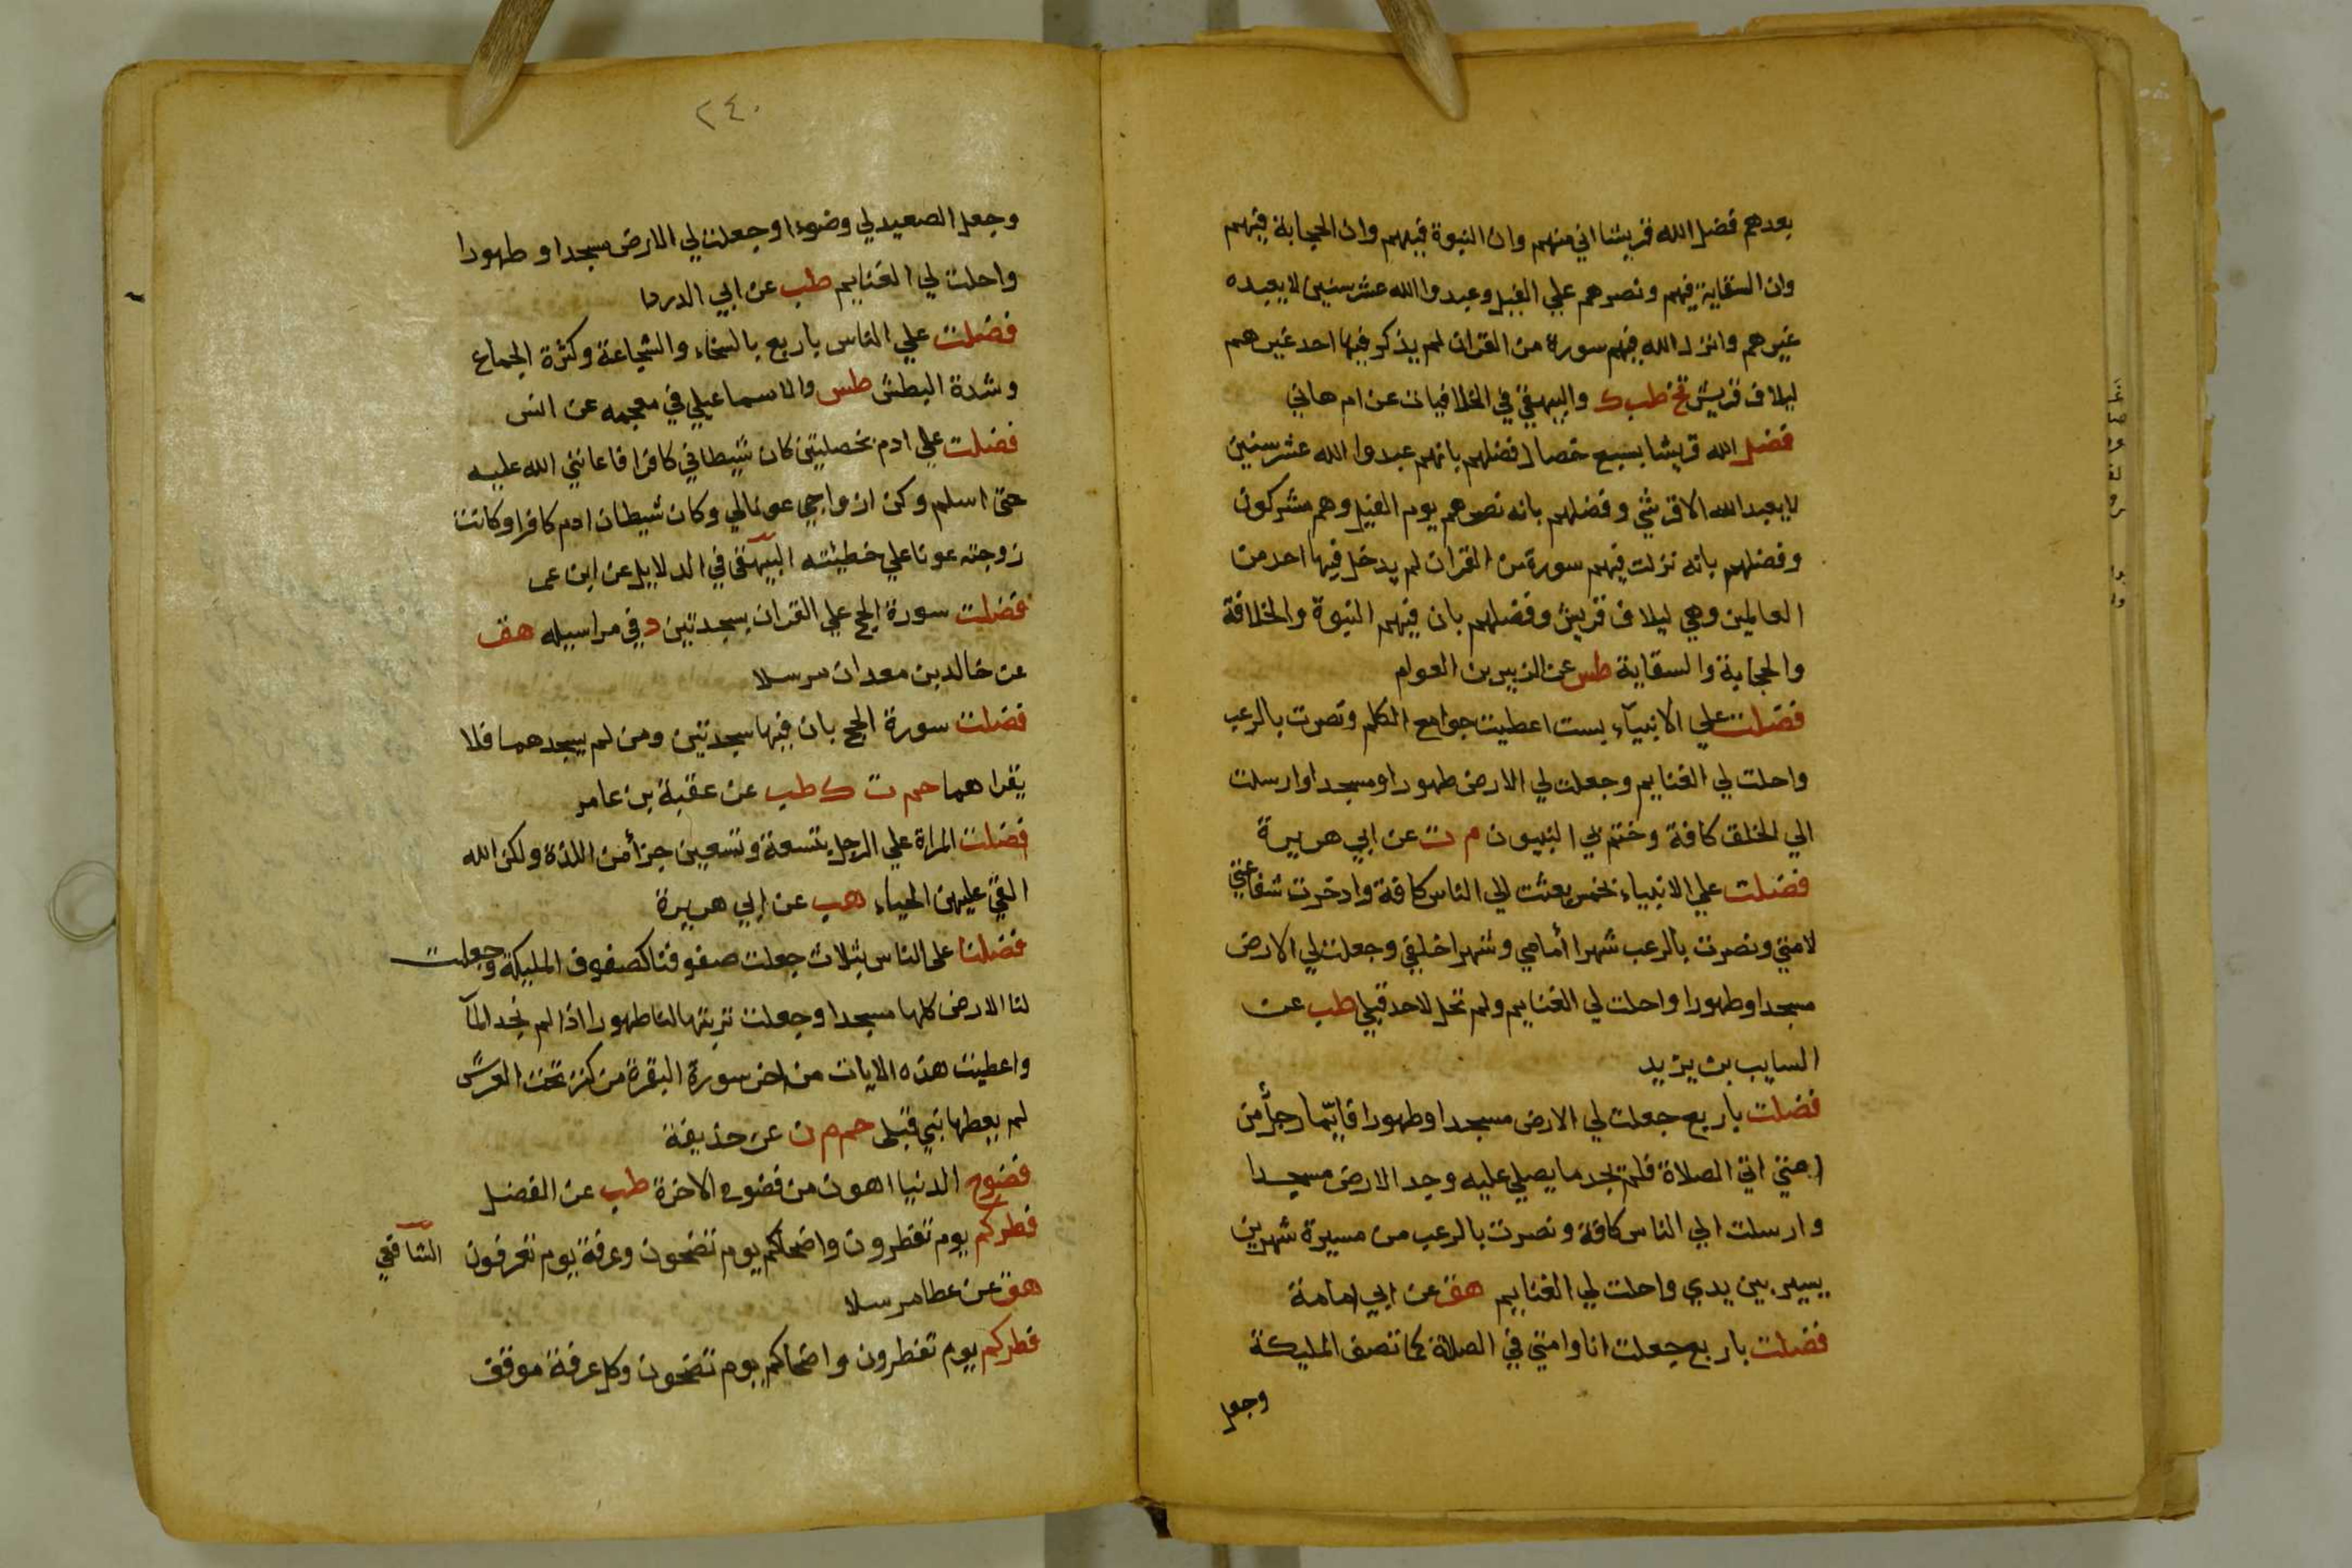 بعدهم فضل الله قريشا اني منهم وان النبوة فيهم وان الحجابة فيهم
وان السقاية فيهم ونصرهم علي الفيل وعبدوا الله عشر سنين لا يعبده
غيرهم وانزل الله فيهم سورة من القران لم يذكر فيها احد غيرهم
ليلاف قريش تخ طب ك والبيهقي في الخلافيات عن ام هاني
فضل الله قريشا بسبع خصال فضلهم بانهم عبدوا الله عشر سنين
لا يعبد الله الا قرشي وفضلهم بانه نصرهم يوم الفيل وهم مشركون
وفضلهم بانه نزلت فيهم سورة من القران لم يدخل فيها احد من
العالمين وهي ليلاف قريش وفضلهم بان فيهم النبوة والخلافة
والحجابة والسقاية طس عن الزبير بن العوام
فضلت علي الانبيآء بست اعطيت جوامع الكلم ونصرت بالرعب
واحلت لي الغنايم وجعلت لي الارض طهورا ومسجدا وارسلت
الي الخلق كافة وختم بي النبيون م ت عن ابي هريرة
فضلت علي الانبياء بخمس بعثت الي الناس كافة وادخرت شفاعتي
لامتي ونصرت بالرعب شهرا أمامي وشهرا خلفي وجعلت لي الارض
مسجدا وطهورا واحلت لي الغنايم ولم تحل لاحد قبلي طب عن
السايب بن يزيد
فضلت باربع جعلت لي الارض مسجدا وطهورا فايّما رجل من
امتي اتي الصلاة فلم يجد ما يصلي عليه وجد الارض مسجدا
وارسلت الي الناس كافة ونصرت بالرعب من مسيرة شهرين
يسير بين يدي واحلت لي الغنايم هق عن ابي امامة
فضلت باربع جعلت انا وامتي في الصلاة كما تصف المليكة
وجعل
٢٤٠
وجعل الصعيد لي وضوءا وجعلت لي الارض مسجدا وطهورا
واحلت لي الغنايم طب عن ابي الدردا
فضلت علي الناس باربع بالسخاء والشجاعة وكثرة الجماع
وشدة البطش طس والاسماعيلي في معجمه عن انس
فضلت علي ادم بخصلتين كان شيطاني كافرا فاعانني الله عليه
حتى اسلم وكن ازواجي عونا لي وكان شيطان ادم كافرا وكانت
زوجته عونا علي خطيئته البيهقي في الدلايل عن ابن عمر
فضلت سورة الحج علي القران بسجدتين د في مراسيله هق
عن خالد بن معدان مرسلا
فضلت سورة الحج بان فيها سجدتين ومن لم يسجدهما فلا
يقراهما حم ت ك طب عن عقبة بن عامر
فضلت المراة علي الرجل بتسعة وتسعين جزأ من اللذة ولكن الله
القي عليهن الحياء هب عن ابي هريرة
فضلنا على الناس بثلاث جعلت صفوفنا كصفوف المليكة وجعلت
لنا الارض كلها مسجدا وجعلت تربتها لنا طهورا اذا لم نجد المآ
واعطيت هذه الايات من اخر سورة البقرة من كنز تحت العرش
لم يعطها نبي قبلي حم م ن عن حذيفة
فضوح الدنيا اهون من فضوح الاخرة طب عن الفضل
فطركم يوم تفطرون واضحاكم يوم تضحون وعرفة يوم تعرفون الشافعي
هق عن عطا مرسلا
فطركم يوم تفطرون واضحاكم يوم تضحون وكل عرفة موقف